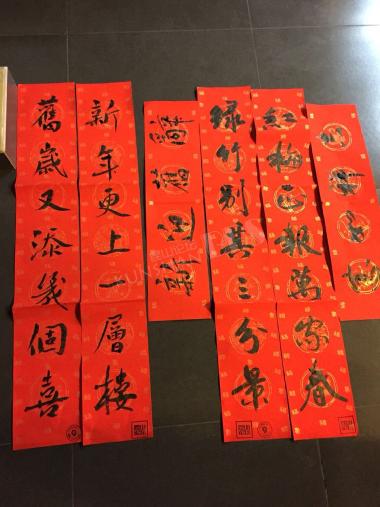 舊歲又添幾個喜
新年更上一層樓
辭舊迎新
緑竹别其三分景
紅梅正報萬家春